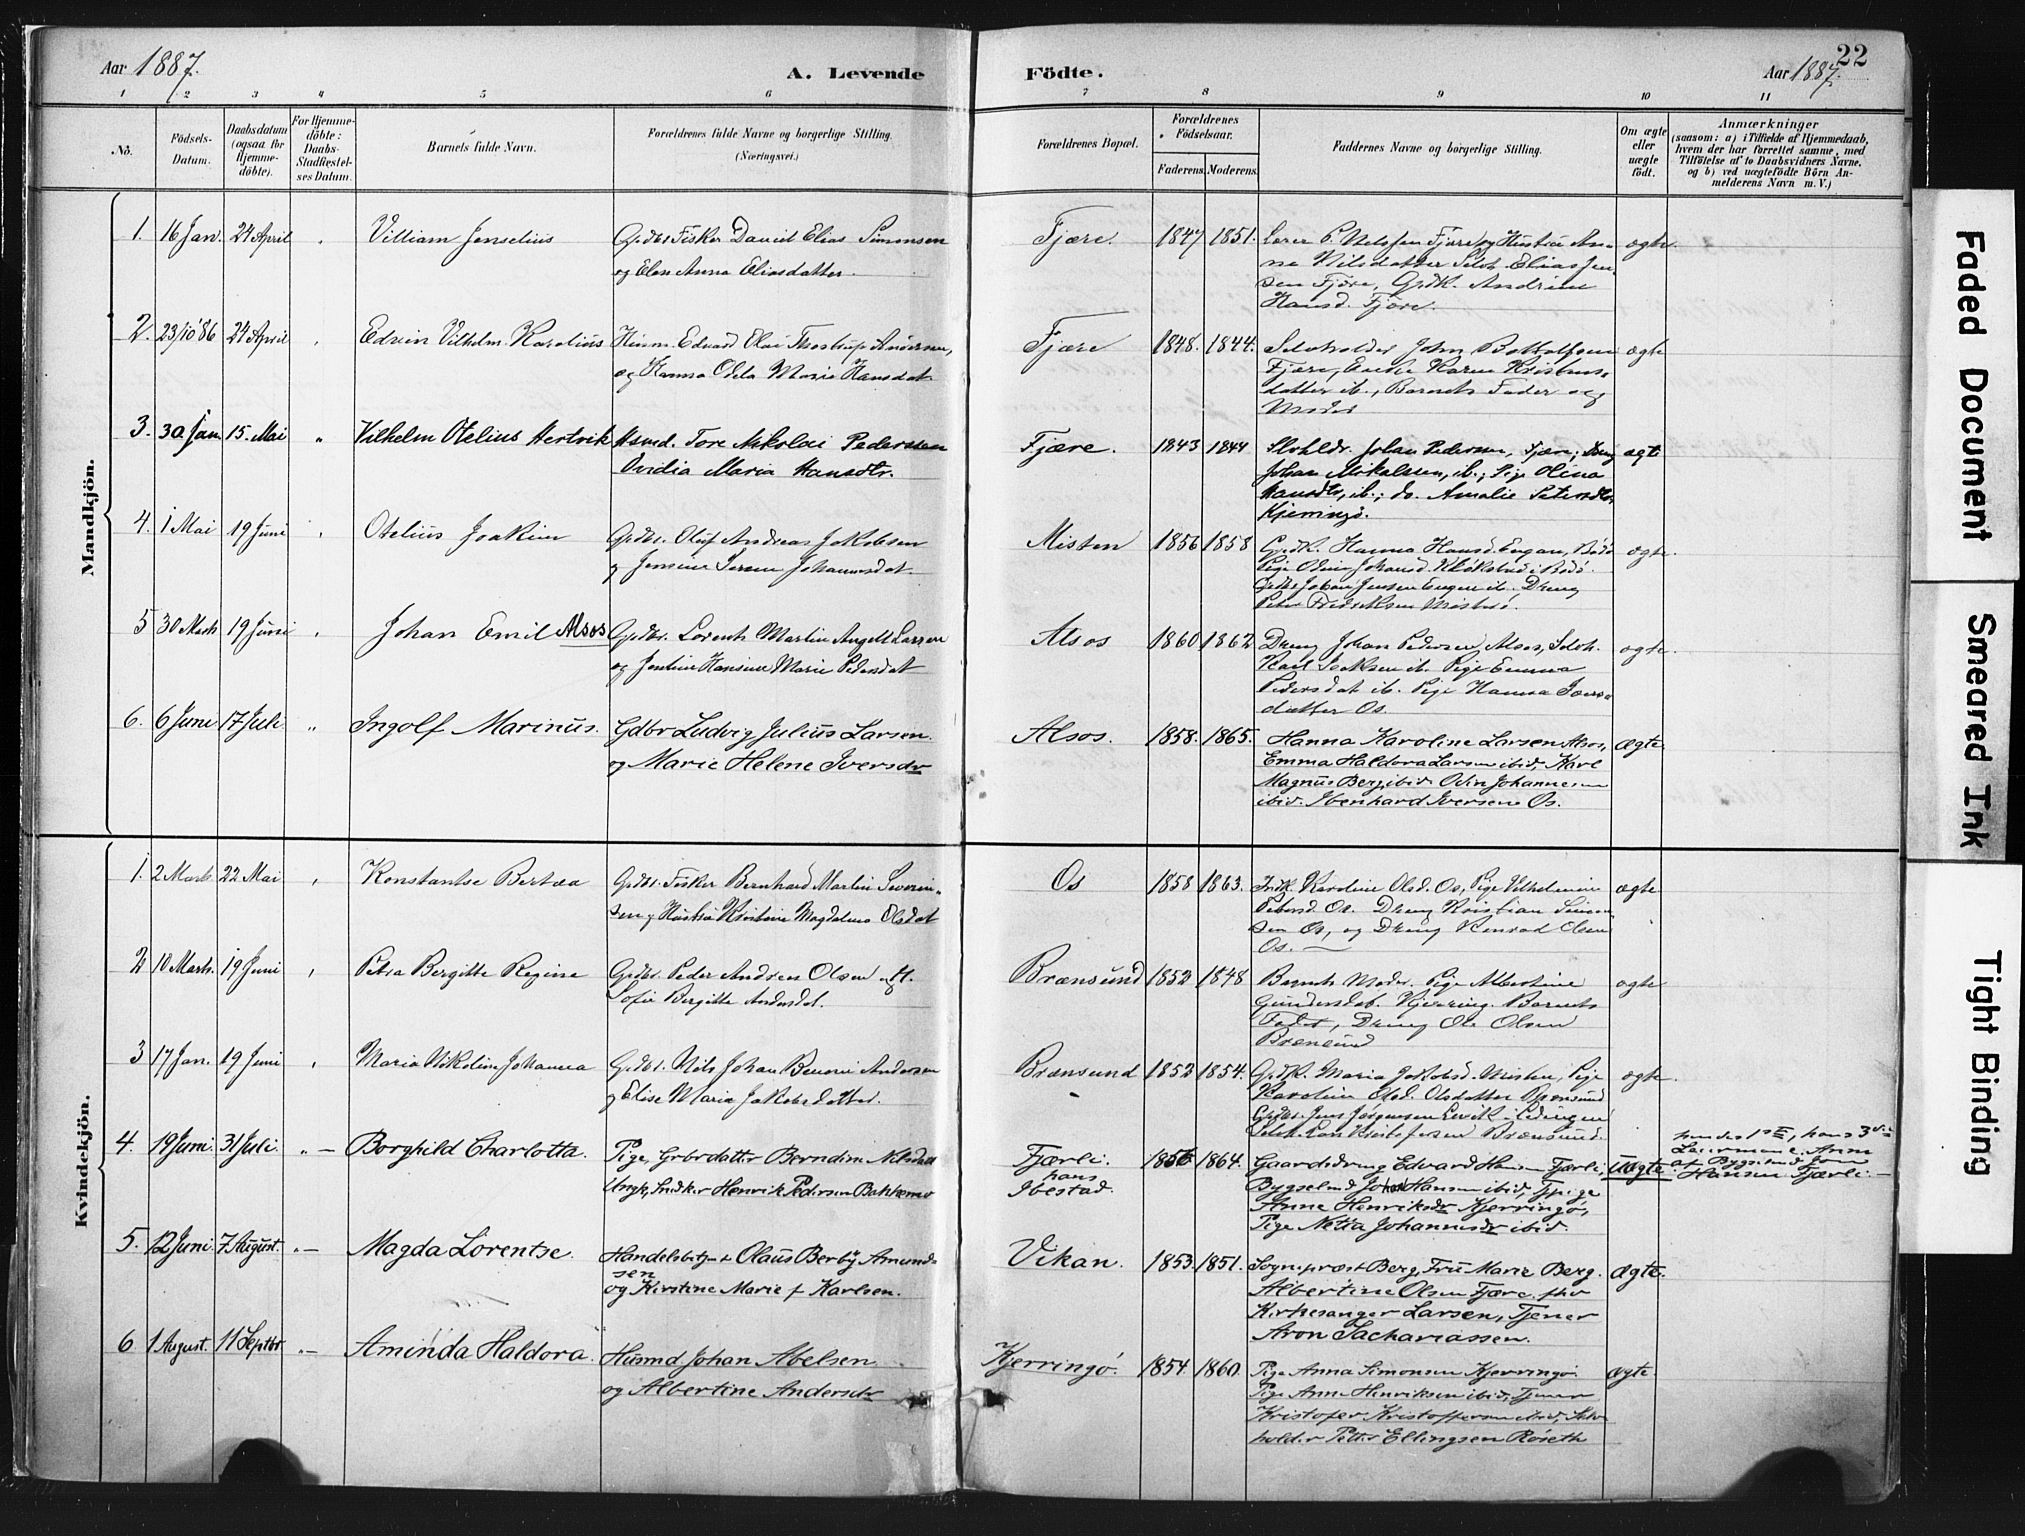 Aar 1887.
A. Levende
Födte.
Aar 1887.
22
1 2 3 4 5 6 7 8 9 10 11
No.
Födsels-
Datum.
Daabsdatum
(ogsaa for
Hjemme-
döbte).
For Hjemme-
döbte:
Daabs-
Stadfæstel-
ses Datum.
Barnets fulde Navn.
Forældrenes fulde Navne og borgerlige Stilling.
(Næringsvei.)
Forældrenes Bopæl.
Forældrenes
Födselsaar.
Faderens. Moderens.
Faddernes Navne og borgerlige Stilling.
Om ægte
eller
uægte
födt.
Anmærkninger
(saasom: a) i Tilfælde af Hjemmedaab,
hvem der har forrettet samme, med
Tilföielse af to Daabsvidners Navne,
og b) ved uægtefödte Börn An-
melderens Navn m. V.)
Mandkjön.
1. 16 Jan. 24 April Villiam Jenselius Grdbr. Fisker Daniel Elias Simonsen
og Elen Anna Eliasdatter.
Fjære. 1847 1851. Lærer P. Nielsen Fjære og Hustru An-
na Nilsdatter Selvh. Elias Jen-
sen Fjære, Grdk. Andrine
Hansd. Fjære.
ægte
2. 23/10 86 24 April Edvin Vilhelm Karolius Husm. Edvard Olai Thostrup Andersen,
og Hanna Odela Marie Hansdat
Fjære 1848. 1844. Selvholder John Bottolfsen
Fjære, Enke Karen Kristens-
datter ib., Barnets Fader og
Moder
ægte
3. 30 Jan. 15. Mai " Vilhelm Otelius Hertvik Husmd. Tore Nikolai Pedersen
Ovidia Maria Hansdtr.
Fjære. 1843 1844 Slvhldr. Johan Pedersen, Fjære; Dreng
Johan Nikolaisen, ib.; Pige Olina
Hansdtr, ib.; do. Amalie Petersdtr,
Kjerringö.
ægte
4. 1 Mai 19 Juni Otelius Joakim Grdbr. Oluf Andreas Jakobsen
og Jensine Serine Johannesdat
Misten 1856 1858 Grdk. Hanna Hansd. Engan, Bodö
Pige Odine Johansd. Klökstad i Bodö.
Grdbr Johan Jensen Engen ib. Dreng
Peter Fredriksen Mistnö.
ægte
5 30 Marts 19 Juni Johan Emil Alsos Grdbr. Lorents Martin Angell Larsen
og Jentine Hansine Marie Pedersdat
Alsos 1860 1862 Dreng Johan Pedersen Alsos, Selvh.
Karl Isaksen ib. Pige Emma
Pedersdat ib. Pige Hanna Ivers-
datter Os.
ægte
6. 6 Juni 17 Juli " Ingolf Marinus. Gdbr Ludvig Julius Larsen.
og Marie Helene Iversdr
Alsos. 1858. 1865. Hanna Karoline Larsen Alsos,
Emma Haldora Larsen ibid, Karl
Magnus Berg, ibid. Odin Johannesen
ibid. Ibenhard Iversen Os.
Ægte.
Kvindekjön.
1. 2 Marts 22 Mai Konstantse Bertea Grdbr. Fisker Bernhard Martin Severin-
sen og Hustru Kristine Magdalena Olsdat
Os 1858 1863. Indk. Karoline Olsd. Os, Pige Vilhelmine
Petersd. Os. Dreng Kristian Simon-
sen Os, og Dreng Konrad Olsen
Os. —
ægte
2 10 Marts. 19 Juni Petra Bergitte Regine Grdbr. Peder Andreas Olsen og H.
Sofie Bergitte Andersdat.
Brænsund 1852 1848. Barnets Moder. Pige Albertine
Gundersdat. Kjerring. Barnets
Fader, Dreng Ole Olsen
Brænsund
ægte
3 17 Jan. 19 Juni Maria Nikoline Johanna Grdbr. Nils Johan Benoni Andersen
og Elise Maria Jakobsdatter.
Brænsund 1852 1854. Grdk. Maria Jakobsd. Misten, Pige
Karoline Olsd. Olsdatter Brænsund
Grdbr. Jens Jörgensen Levik i Lödingen
Selvh. Kristofersen Brænsund.
ægte
4. 19 Juni 31 Juli. " — Borghild Charlotta. Pige, Grbrdatter Berndine Nilsdatt
Ungk, Snedker Henrik Pedersen Bakkemo
Fjærli.
hans
Ibestad.
1856 1864. Gaardsdreng Edvard Fjærli,
Bygselmd Johan Hansen ibid, Pige
Anne Henriksdr Kjerringö,
Pige Netta Johannesdr ibid.
Uægte. hendes 1ste, hans 3die
Leiermaal. Anm
af Bygselmd Johan
Hansen Fjærli. —
5. 12 Juni. 7 August. " — Magda Lorentse. Handelsbetj. Olaus Berby Amund-
sen
og Kirstine Marie f Karlsen.
Vikan. 1853. 1851. Sognepræst Berg, Fru Marie Berg.
Albertine Olsen Fjære.
Kirkesanger Larsen, Tjener
Aron Sachariassen.
Ægte.
6 1 August. 11 Septbr " — Aminda Haldora. Husmd Johan Abelsen
og Albertine Andersdr
Kjerringö. 1854. 1860. Pige Anna Simonsen Kjerringö.
Pige Anne Henriksen ibid, Tjener
Kristofer Kristoffersen ibid, Selv-
holder Petter Ellingsen Röseth
Ægte.
Faded Document
Smeared Ink
Tight Binding